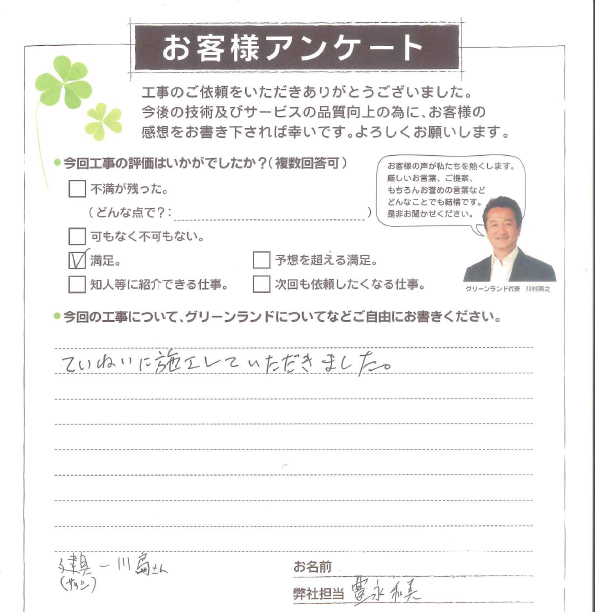 お客様アンケート
工事のご依頼をいただきありがとうございました。
今後の技術及びサービスの品質向上の為に、お客様の
感想をお書き下されば幸いです。よろしくお願いします。
今回工事の評価はいかがでしたか?(複数回答可)
不満が残った。
(どんな点で?:)
可もなく不可もない。
満足。
予想を超える満足。
知人等に紹介できる仕事。
次回も依頼したくなる仕事。
お客様の声が私たちを熱くします。
厳しいお言葉、ご提案、
もちろんお誉めの言葉など
どんなことでも結構です。
是非お聞かせください。
グリーンランド代表 川村英之
今回の工事について、グリーンランドについてなどご自由にお書きください。
ていねいに施工していただきました。
建具 ー 川島さん
(サッシ)
お名前
弊社担当 豊永和美